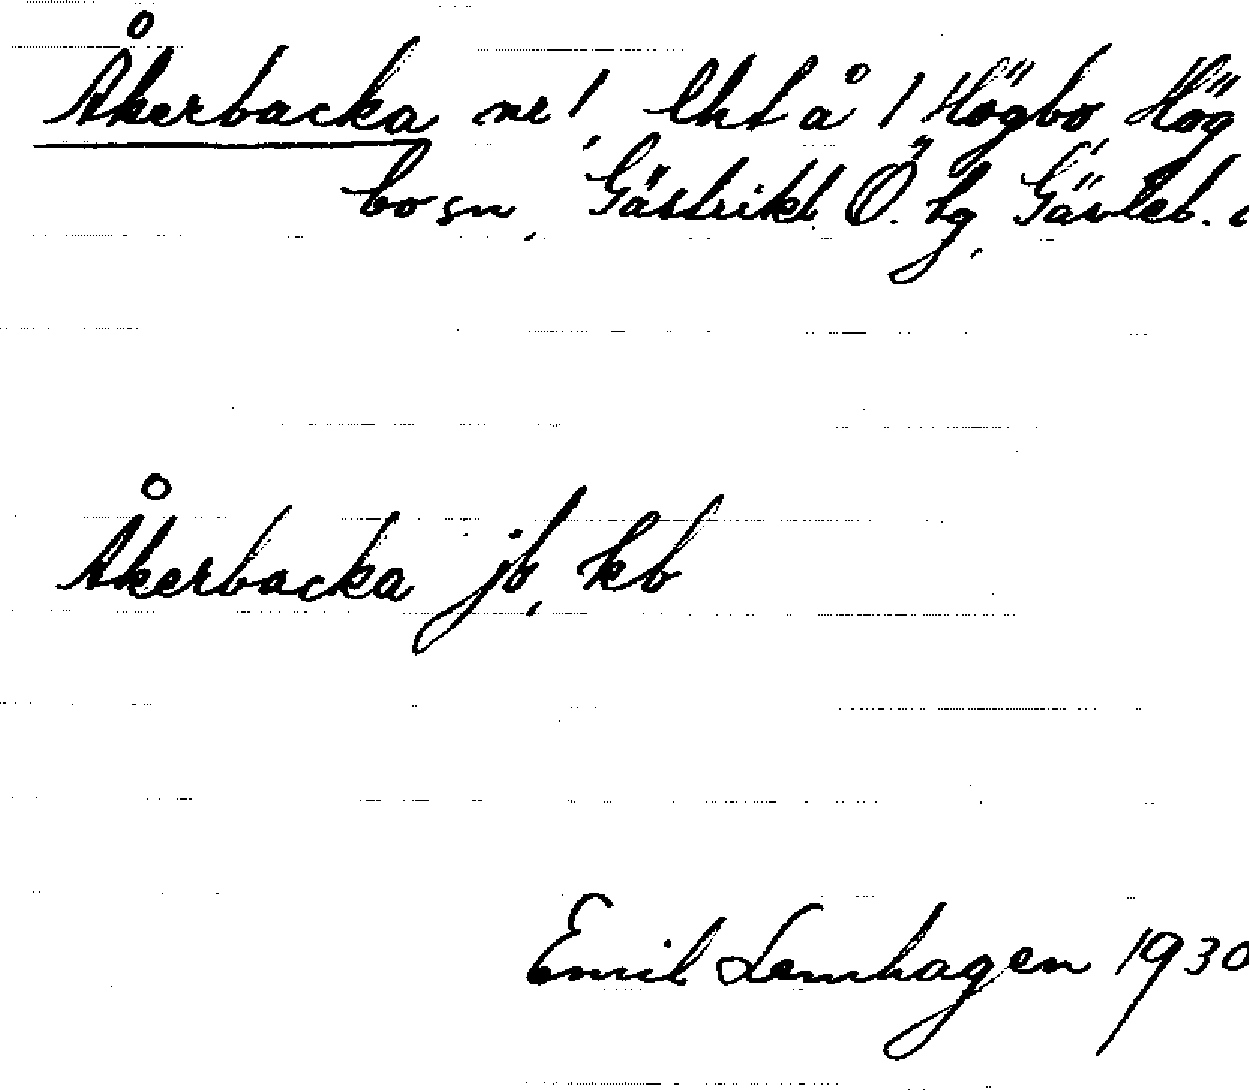 Åkerbacka nr 1, lht å 1 Högbo, Hög
bo sn, Gästrikl. Ö. tg, Gävleb. 
Åkerbacka jb, kb
Emil Lemhagen 1930